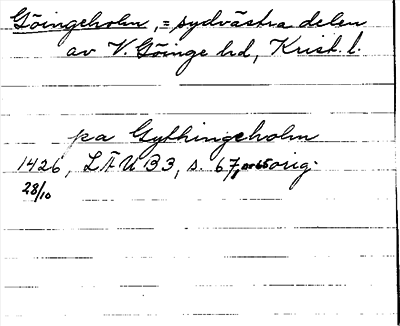 Göingeholm, = sydvästra delen
av V. Göinge hd, Krist. l.
pa Gythingeholm
1426, LÄU B3, s. 67, nr 65 orig.
28/10